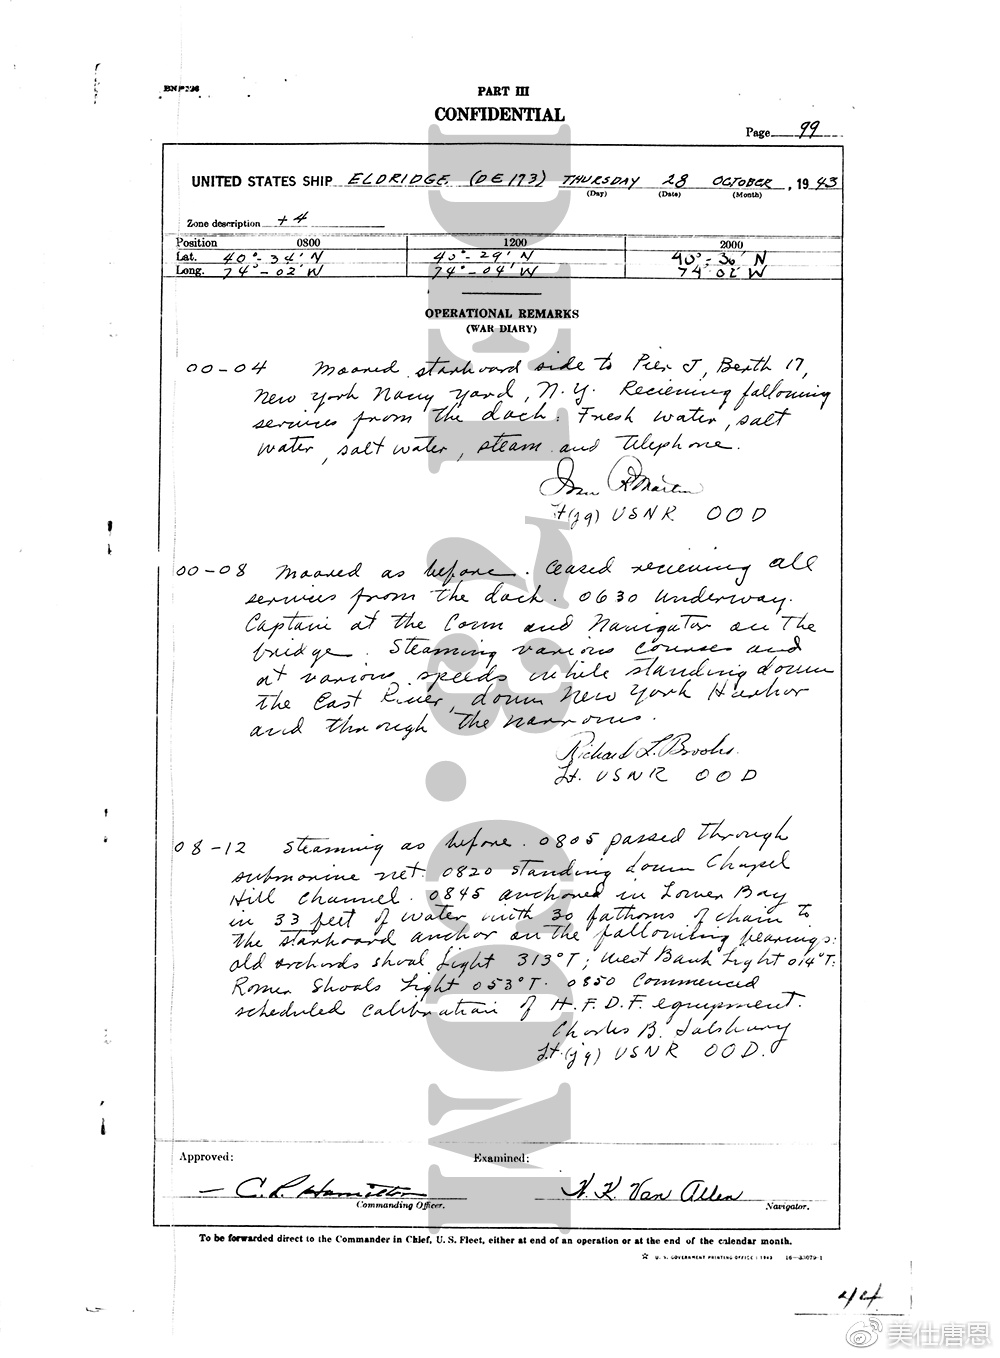 BNP226
PART III
CONFIDENTIAL
Page 99
UNITED STATES SHIP ELDRIDGE (DE 173) THURSDAY 28 OCTOBER, 1943
(Day) (Date) (Month)
Zone description +4
Position 0800 1200 2000
Lat. 40°-34' N 40°-29' N 40°-30' N
Long. 74°-02' W 74°-04' W 74°02' W
OPERATIONAL REMARKS
(WAR DIARY)
00-04 Moored starboard side to Pier J, Berth 17,
New York Navy Yard, N.Y. Recieving following
services from the dock: Fresh water, salt
water, salt water, steam and telephone.
Martin
Lt(jg) USNR OOD
00-08 Moored as before. Ceased recieving all
services from the dock. 0630 Underway.
Captain at the Conn and Navigator on the
bridge. Steaming various courses and
at various speeds while standing down
the East River, down New York Harbor
and through the narrows.
Richard L. Brooks.
Lt. USNR OOD
08-12 Steaming as before. 0805 passed through
submarine net. 0820 standing down Chapel
Hill Channel. 0845 anchored in Lower Bay
in 33 feet of water with 30 fathoms of chain to
the starboard anchor on the following bearings:
old orchards shoal light 313°T; West Bank Light 014°T;
Romer Shoals Light 053°T. 0850 Commenced
scheduled calibration of H.F.D.F. equipment.
Charles B. Salsbury
Lt.(jg) USNR OOD.
Approved: Examined:
C. R. Hamilton N. K. Van Allen
Commanding Officer. Navigator.
To be forwarded direct to the Commander in Chief, U. S. Fleet, either at end of an operation or at the end of the calendar month.
☆ U. S. GOVERNMENT PRINTING OFFICE : 1943 16-33079-1
@美仕唐恩